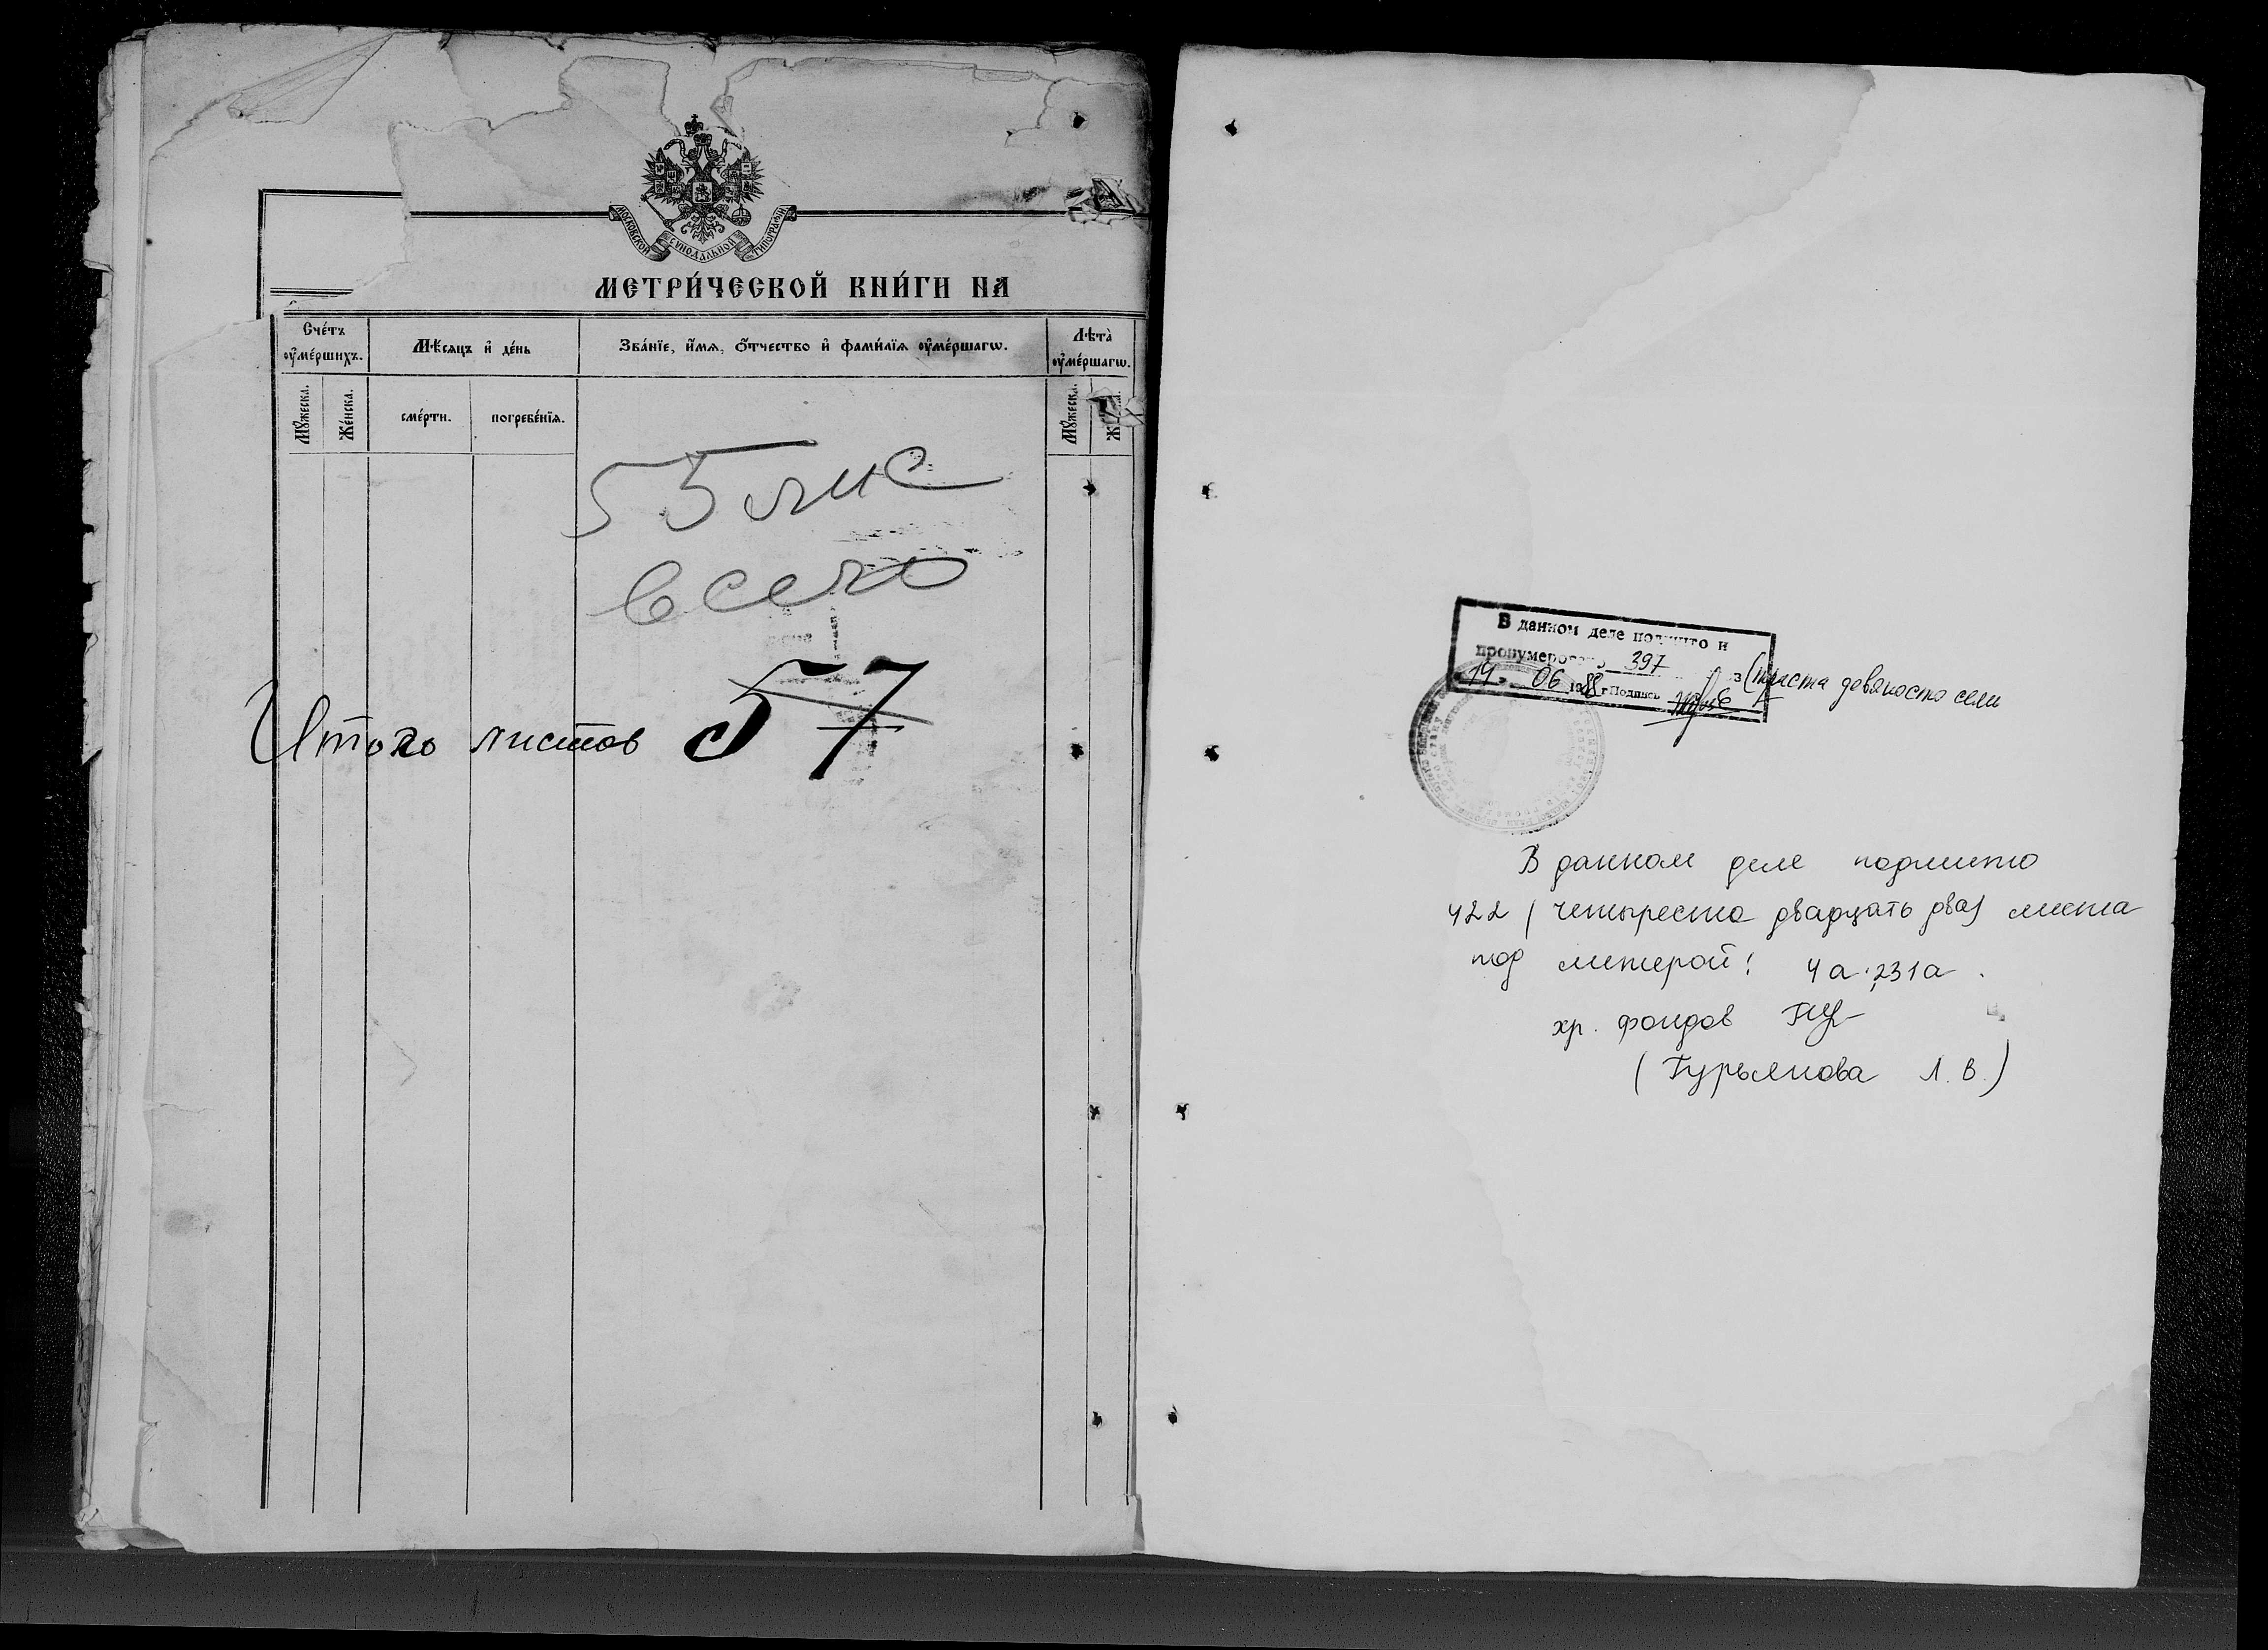 МОСКОВСКОЙ СУНОДАЛЬНОЙ ТИПОГРАФІИ
МЕТРИ́ЧЕСКОЙ КНИ́ГИ НА
Сче́тъ оу҆ме́ршихъ.
Мѣ́сяцъ и҆ де́нь
Зва́нїе, и҆́мѧ, ѻ҆́тчество и҆ фами́лїѧ оу҆ме́ршагѡ.
Лѣта̀ оу҆ме́ршагѡ.
Мꙋ́жеска.
Же́нска.
сме́рти.
погребе́нїѧ.
Мꙋ́жеска.
55 лис
всего
Итого листов 57
В данном деле подшито и
пронумеровано 397
(триста девяносто семи
14. 06 1988 г. Подпись
В данном деле подшито
422 (четыреста двадцать два) листа
под литерой: 4а, 231а.
хр. фондов
(Гурьянова Л. В.)